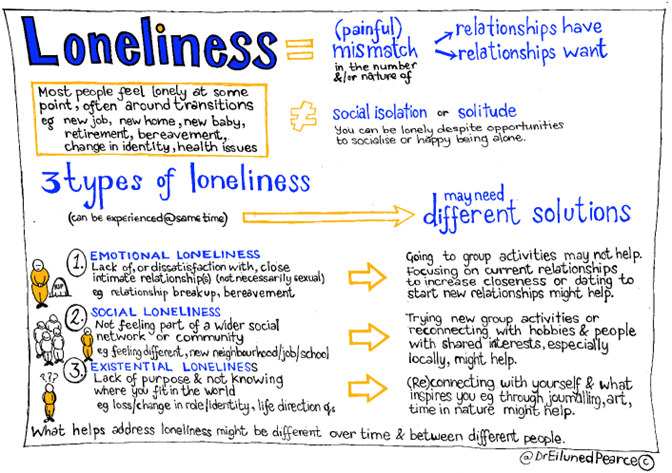 Loneliness = (painful) mismatch in the number &/or nature of
relationships have
relationships want
Most people feel lonely at some
point, often around transitions
eg new job, new home, new baby,
retirement, bereavement,
change in identity, health issues
≠ social isolation or solitude
You can be lonely despite opportunities
to socialise or happy being alone.
3 types of loneliness
(can be experienced @ same time)
may need
different solutions
1. EMOTIONAL LONELINESS
Lack of, or dissatisfaction with, close
intimate relationship(s) (not necessarily sexual)
eg relationship breakup, bereavement
RIP
Going to group activities may not help.
Focusing on current relationships
to increase closeness or dating to
start new relationships might help.
2. SOCIAL LONELINESS
Not feeling part of a wider social
network or community
eg feeling different, new neighbourhood/job/school
Trying new group activities or
reconnecting with hobbies & people
with shared interests, especially
locally, might help.
3. EXISTENTIAL LONELINESS
Lack of purpose & not knowing
where you fit in the world
eg loss/change in role/identity, life direction qs
???
(Re)connecting with yourself & what
inspires you eg through journalling, art,
time in nature might help.
What helps address loneliness might be different over time & between different people.
@DrEilunedPearce ©